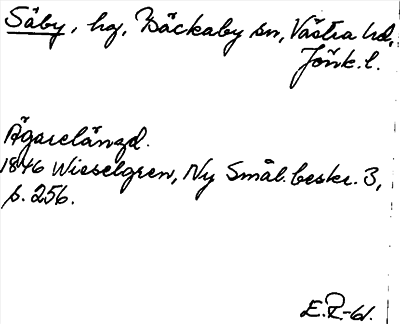 Säby, hg, Bäckaby sn, Västra hd,
Jönk. l.
Ägarelängd.
1846 Wieselgren, Ny Smål. beskr. 3,
s. 256.
E.R-61.